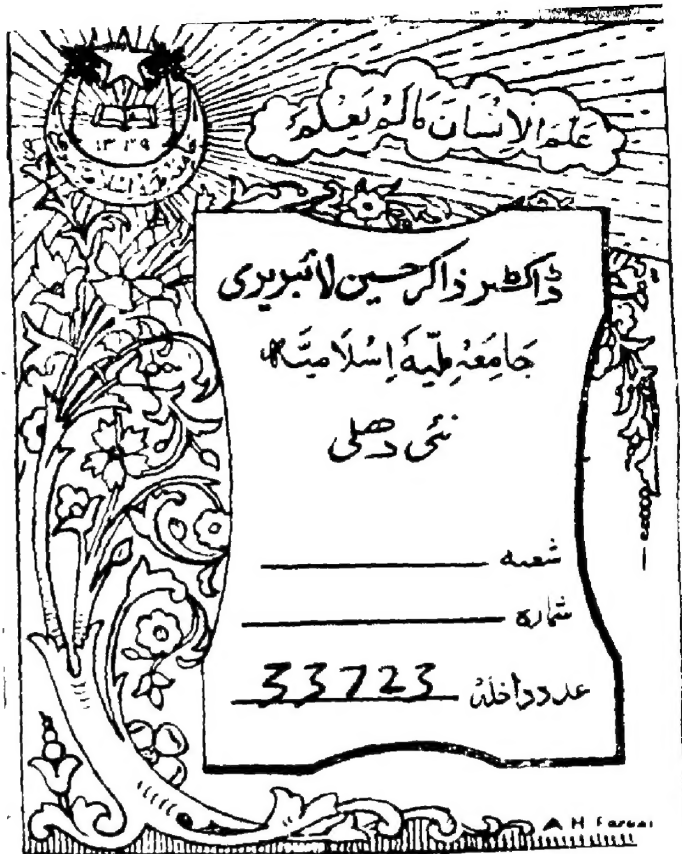 عَلَّمَ الْاِنْسَانَ مَالَمْ يَعْلَمْ
۱۳۳۹
ڈاکٹر ذاکر حسین لائبریری
جَامِعَہ مِلّیہ اِسْلَامِیَّہ
نئی دھلی
شعبہ
شمارہ
عدد داخلہ 33723
A H